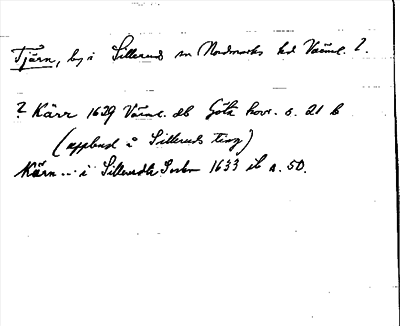 Tjärn, by i Sillerud sn Nordmarks hd Värml. l.
? Kärr 1629 Värml. db Göta hovr. s. 21 b
(uppbud å Silleruds ting)
Kärn ... i Silleruds Sochn 1633 ib s. 50.